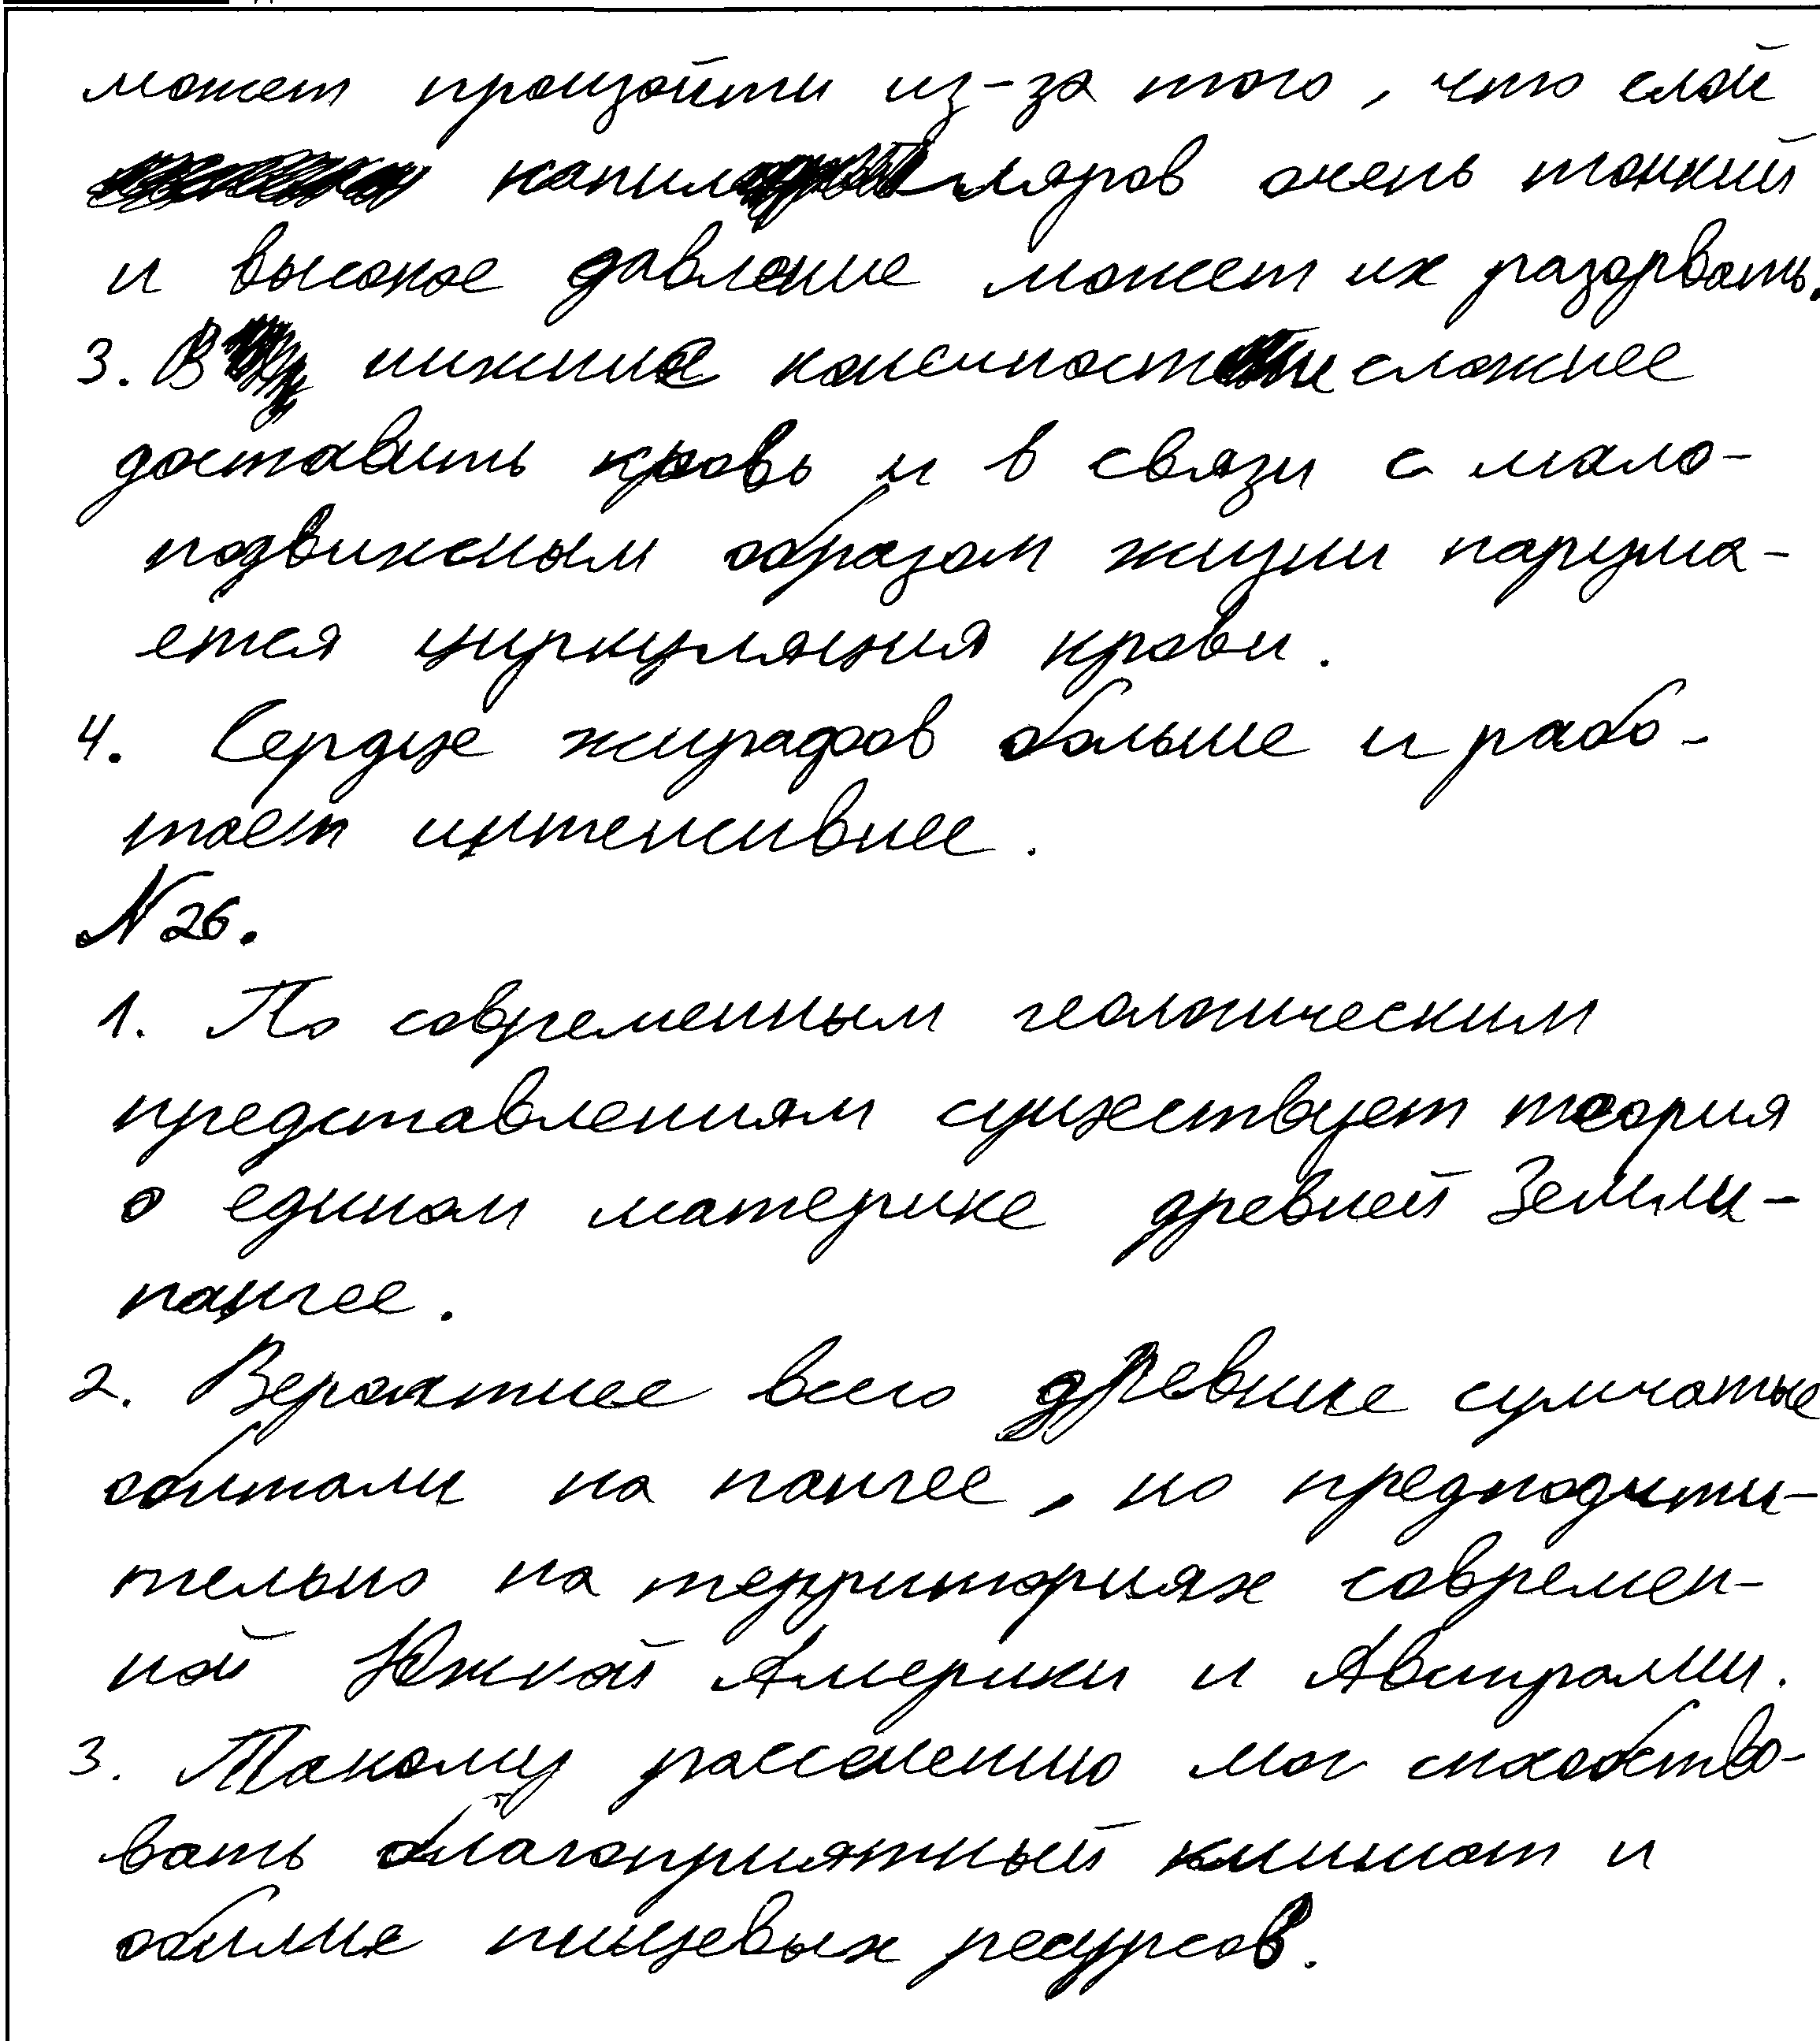 может произойти из-за того, что слой
капилляров очень тонкий
и высокое давление может их разорвать.
3. В нижние конечности сложнее
доставить кровь и в связи с мало-
подвижным образом жизни наруша-
ется циркуляция крови.
4. Сердце жирафов больше и рабо-
тает интенсивнее.
N 26.
1. По современным геологическим
представлениям существует теория
о едином материке древней Земли-
пангее.
2. Вероятнее всего древние сумчатые
обитали на пангее, но предпочти-
тельно на территориях современ-
ной Южной Америки и Австралии.
3. Такому расселению мог способство-
вать благоприятный климат и
обилие пищевых ресурсов.